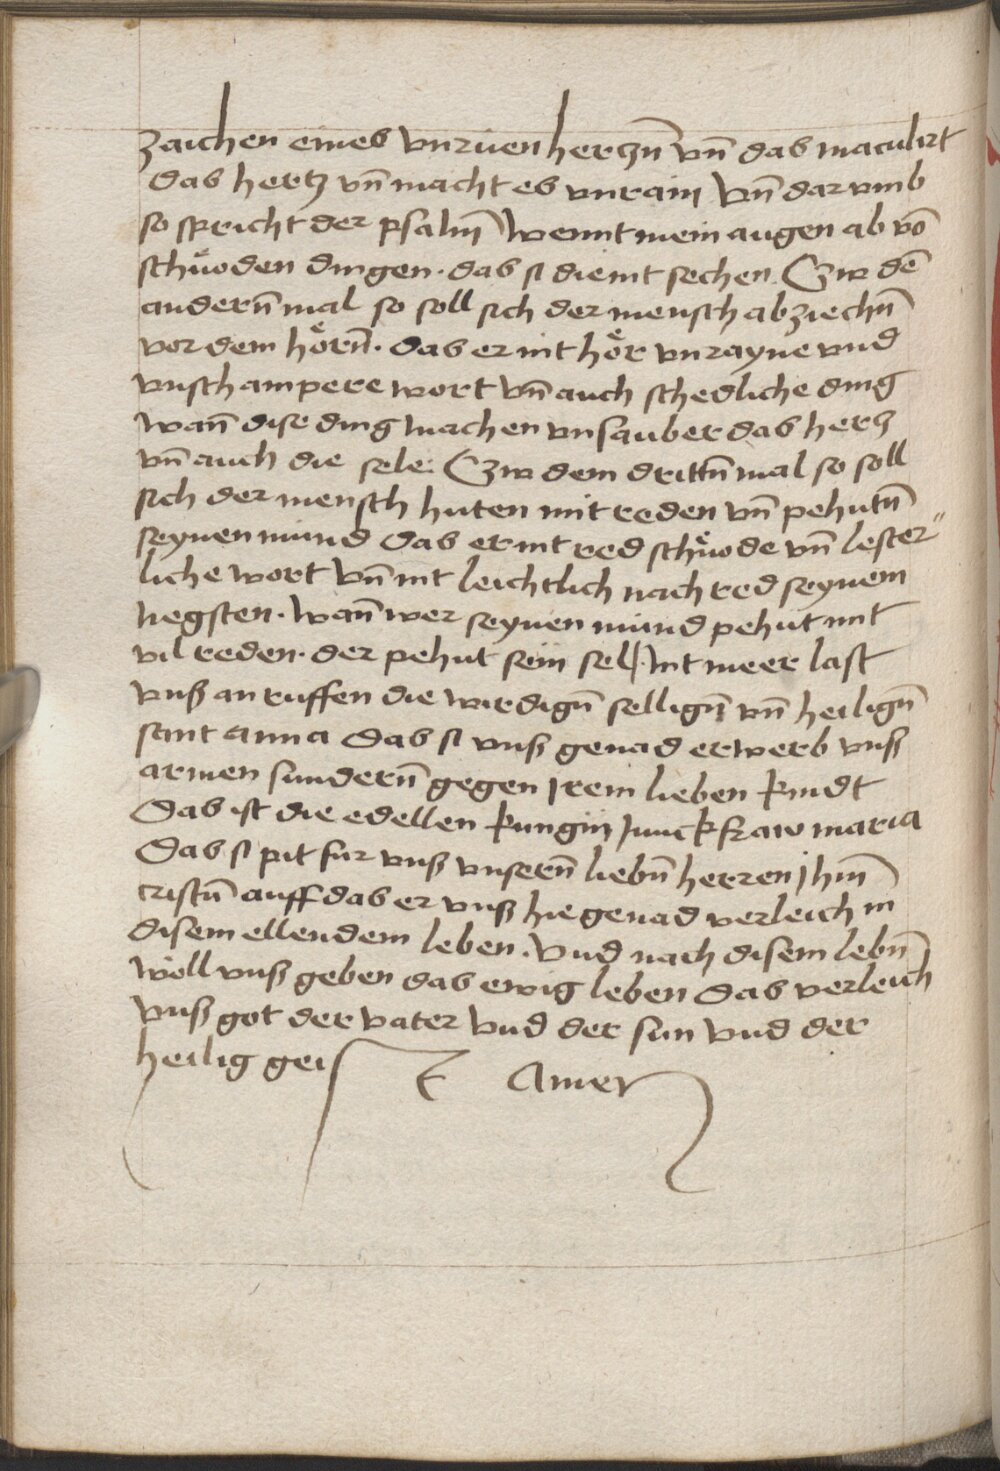 zaichen eines vnrüen hertzn̄ vn̄ das maculirt
das hertz vn̄ macht es vnrain Vn̄ dar vmb
so spricht der psalm̄ Wennt mein augen ab vō
schnöden dingen · das si die nit sechen. Czw dē
andern̄ mal so soll sich der mensch ab ziechn̄
vor dem hörn̄ · das er nit hör vnrayne vnd
vnschampere wort vn̄ auch schedliche ding
Wan̄ dise ding machen vnsauber das hertz
vn̄ auch die sele. Czw dem drittn̄ mal so soll
sich der mensch huten mit reden vn̄ pehutn̄
seynen mund das er nit red schnöde vn̄ lester⸗
liche wort vn̄ nit leichtlich nach red seynem
negsten · Wan̄ wer seynen mund pehut mit
vil reden · der pehut sein sell · Nit meer last
vnß an ruffen die wirdign̄ sellign̄ vn̄ heilign̄
sant anna das si vnß genad erwerb vnß
armen sundern̄ gegen Irem lieben kindt
Das ist die edellen kungin Junckfraw maria
Das si pit fur vnß vnsern̄ liebn̄ herren Jhm̄
cristn̄ auff das er vnß hie genad verleich in
disem ellendem leben · Vnd nach disem lebn̄
wöll vnß geben das ewig leben Das verleich
vnß got der vater Vnd der sun Vnd der
heilig geist Amen